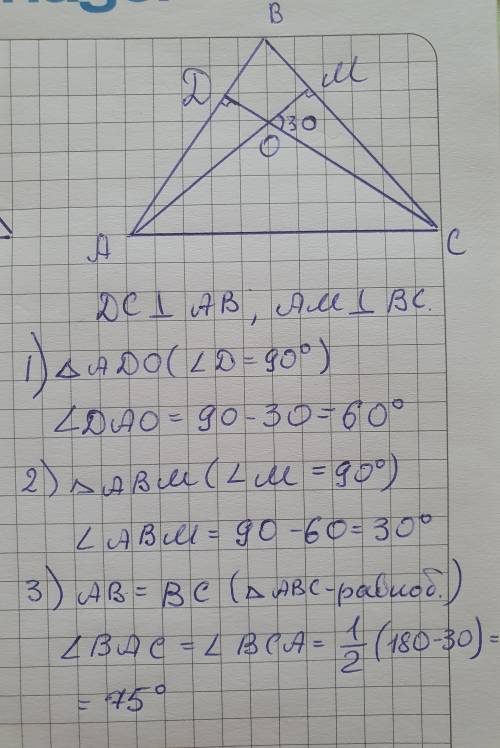 B
Д
M
30
O
A
C
DC ⊥ AB; AM ⊥ BC.
1) △ADO (∠D = 90°)
∠DAO = 90 - 30 = 60°
2) △ABM (∠M = 90°)
∠ABM = 90 - 60 = 30°
3) AB = BC (△ABC - равноб.)
∠BAC = ∠BCA = 1/2 (180 - 30) =
= 75°